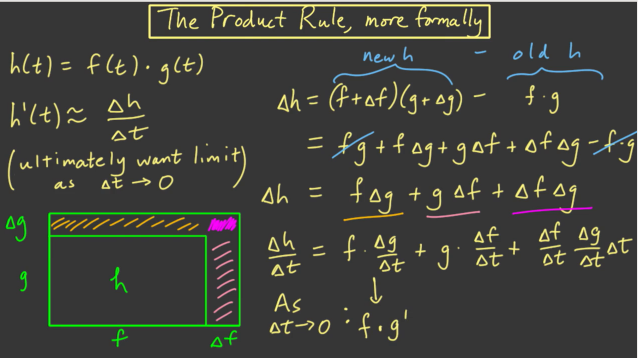 The Product Rule, more formally
h(t) = f(t) · g(t)
h'(t) ≈ Δh/Δt
(ultimately want limit as Δt → 0)
new h - old h
Δh = (f+Δf)(g+Δg) - f·g
= fg + fΔg + gΔf + ΔfΔg - f·g
Δh = fΔg + gΔf + ΔfΔg
Δh/Δt = f · Δg/Δt + g · Δf/Δt + Δf/Δt Δg/Δt Δt
↓
As Δt→0 : f · g'
Δg
g
h
f
Δf